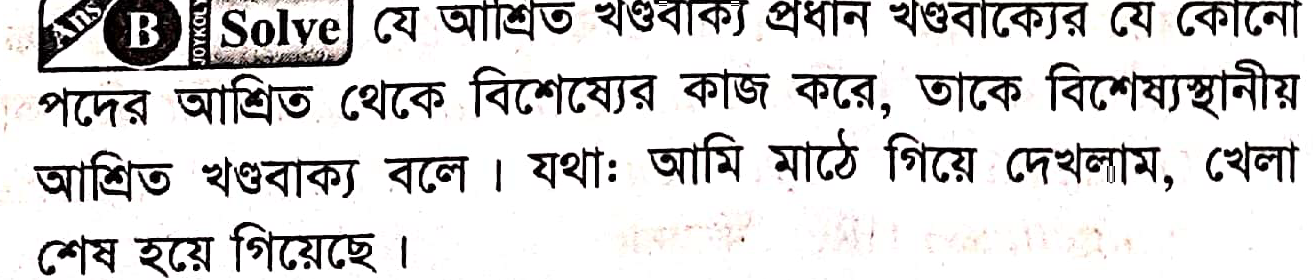 Ans B JOYKOLY Solve যে আশ্রিত খণ্ডবাক্য প্রধান খণ্ডবাক্যের যে কোনো
পদের আশ্রিত থেকে বিশেষ্যের কাজ করে, তাকে বিশেষ্যস্থানীয়
আশ্রিত খণ্ডবাক্য বলে । যথা: আমি মাঠে গিয়ে দেখলাম, খেলা
শেষ হয়ে গিয়েছে ।